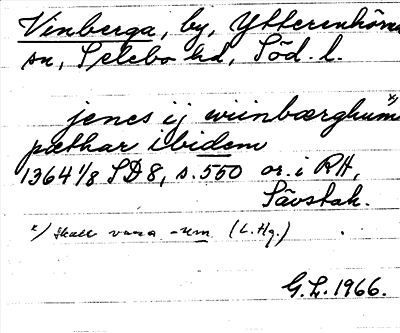 Vinberga, by, Ytterenhörn
sn, Selebo hd, Söd. l.
jenes ij wiinbærghum x)
pæthar ibidem
1364 1/8 SD 8, s. 550 or. i RA,
Sävstah.
x) skall vara -um (L. Hg.)
G. L. 1966.